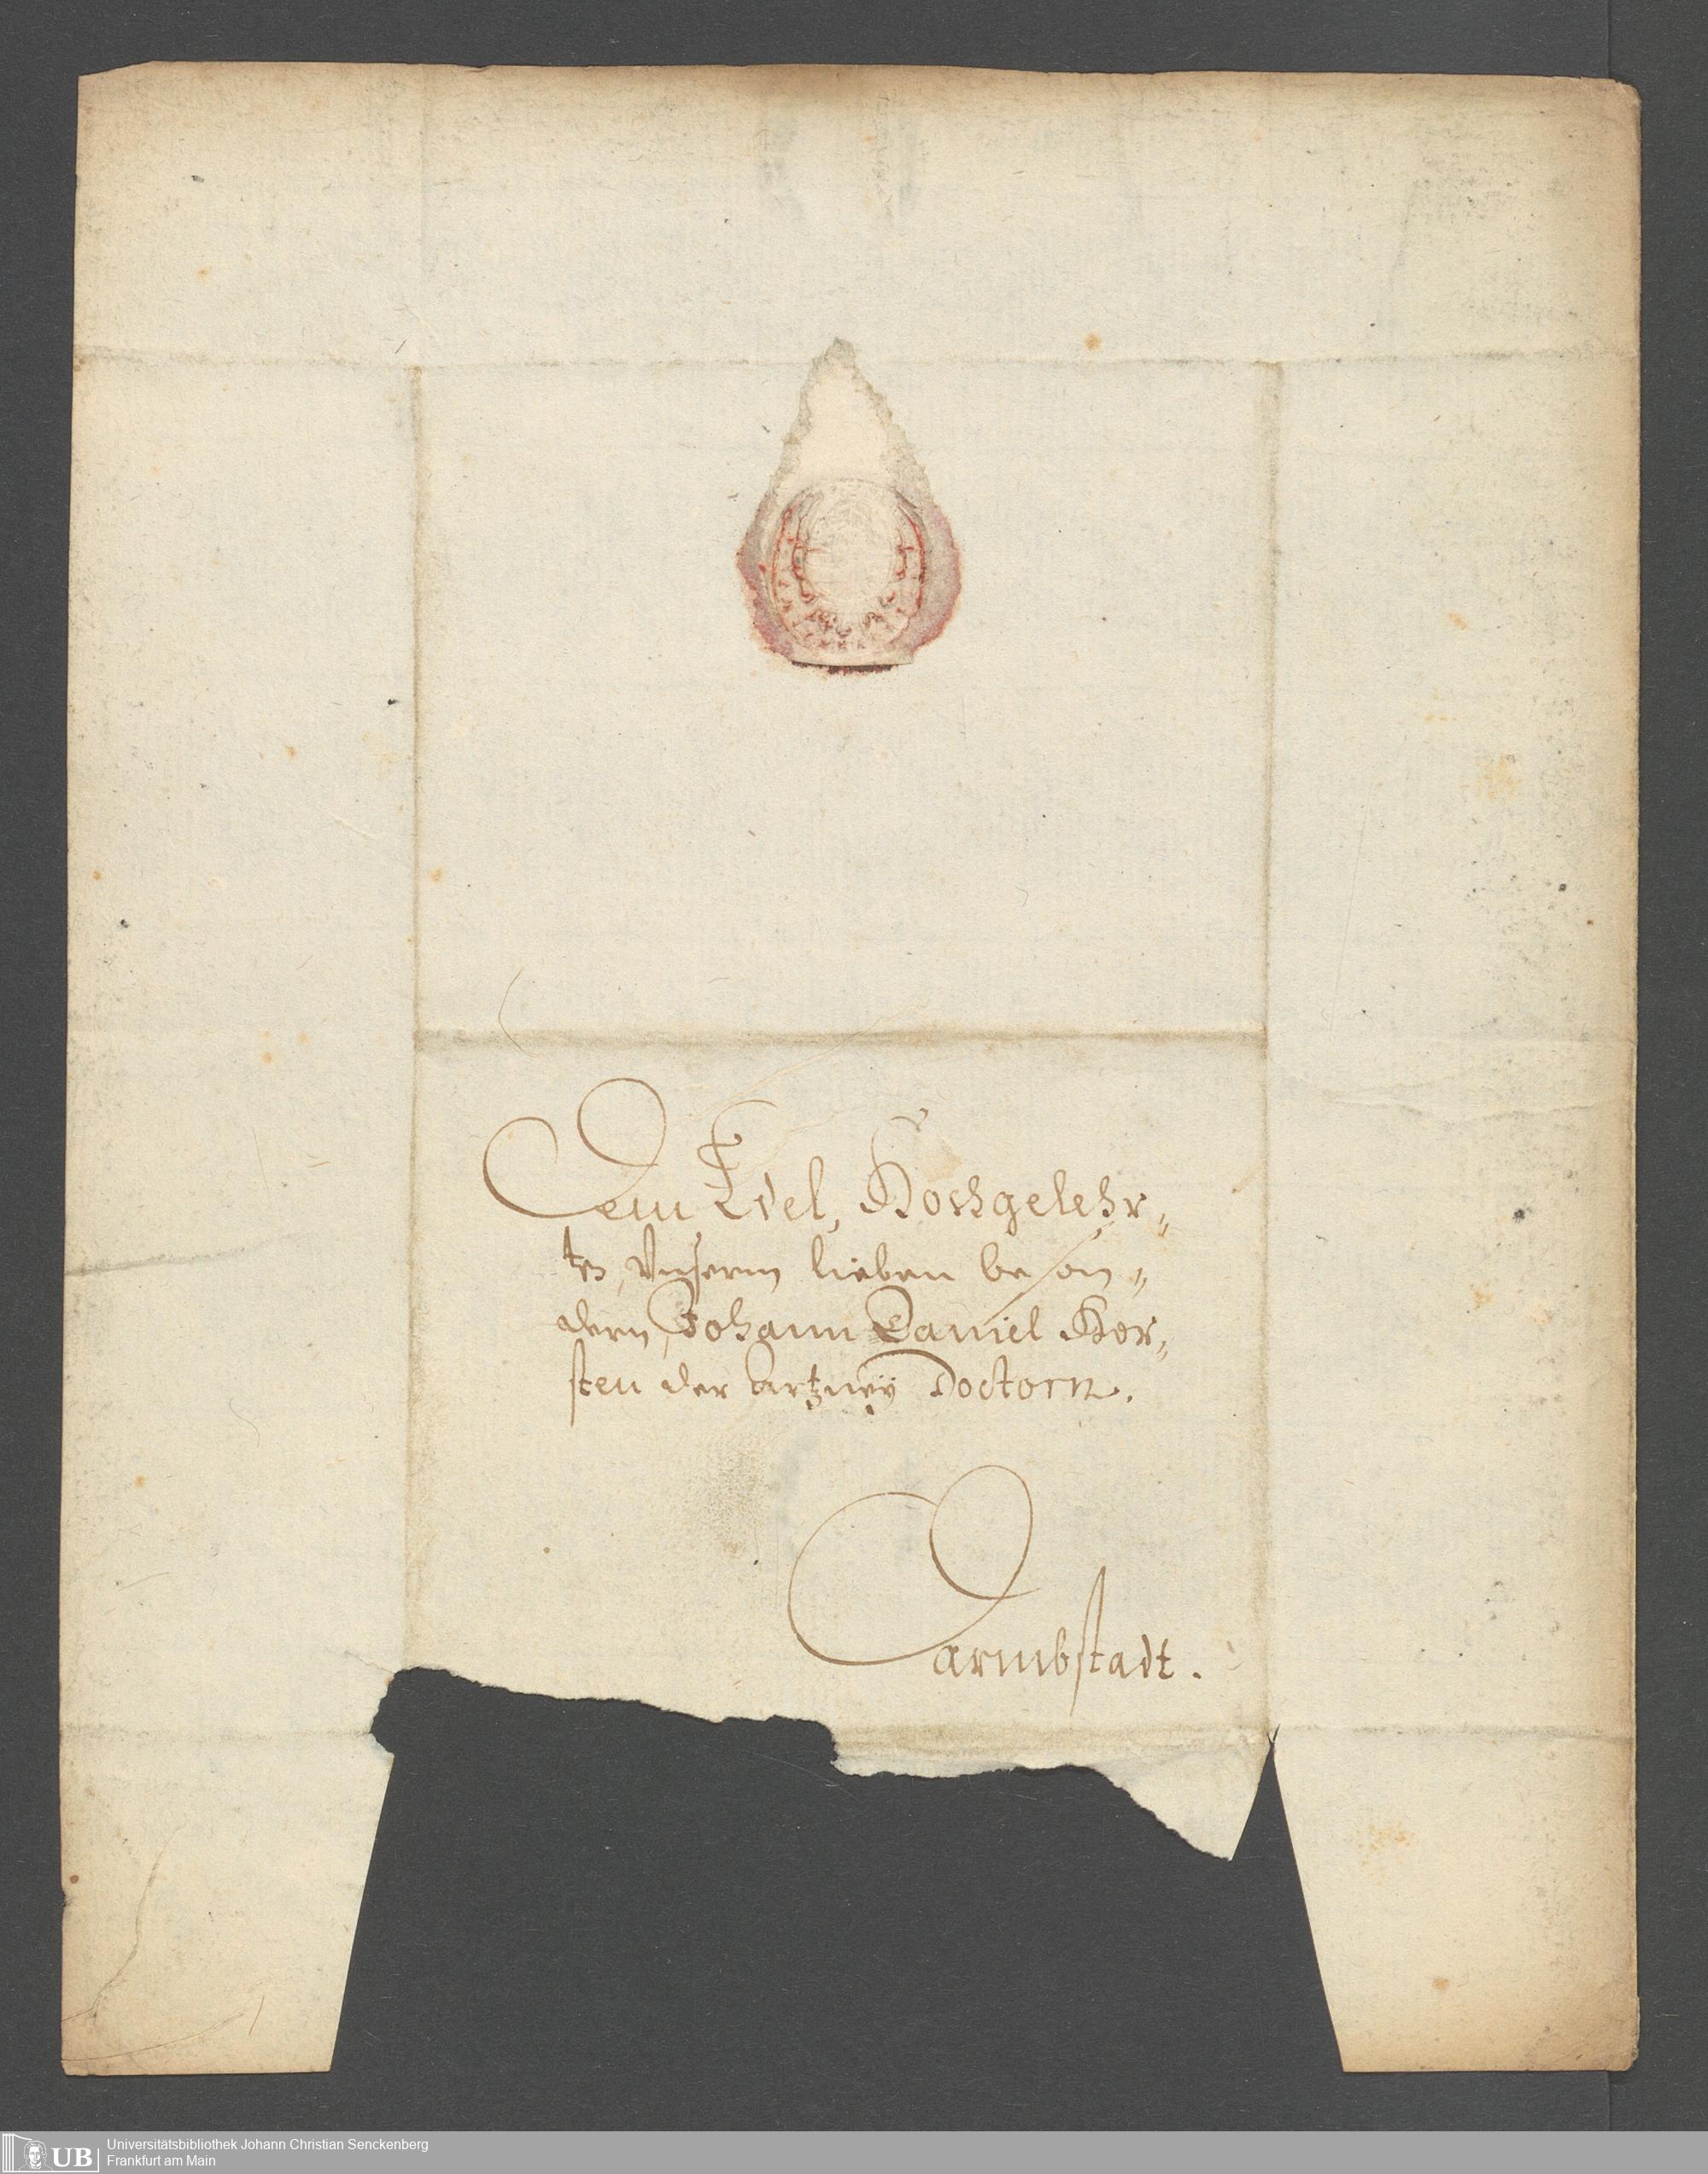 Dem Edel, Hochgelehr„
ten, Unserm lieben beson„
dern, Johann Daniel Hor„
sten der Artzneÿ Doctorn.
Darmbstadt.
UB
Universitätsbibliothek Johann Christian Senckenberg
Frankfurt am Main